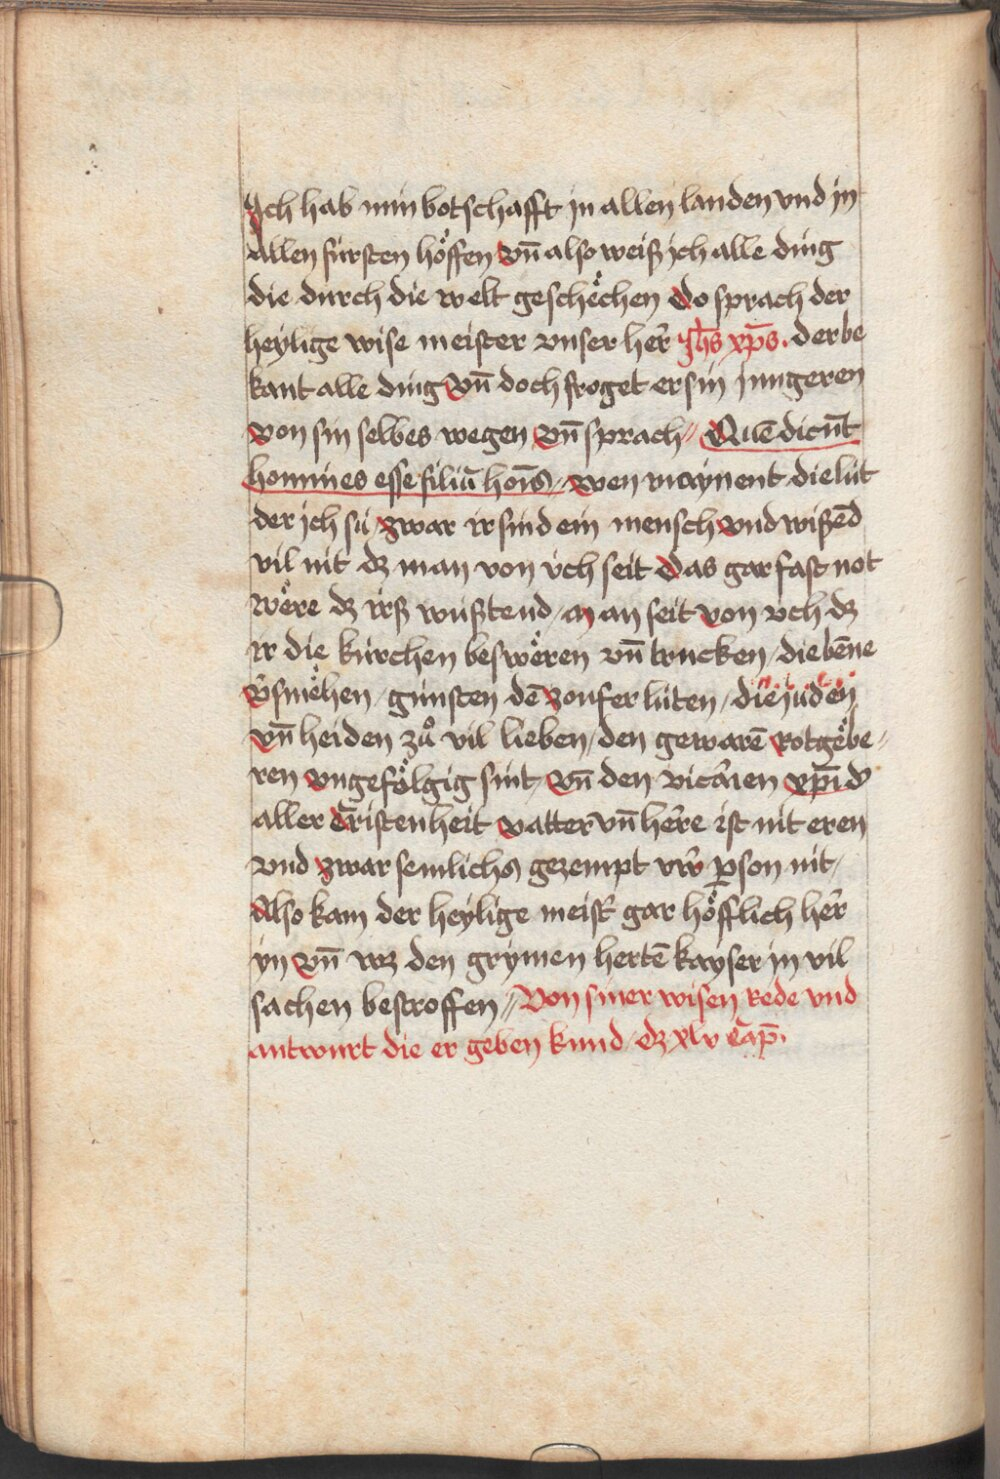 Ich hab min botschafft in allen landen vnd in
Allen fürsten höffen Vn̄ also weiß ich alle ding
die durch die welt geschëchen Do sprach der
heylige wise meister vnser her̄ Jhs xp̄s. der be
kant alle ding Vn̄ doch froget er sin Jungeren
von sin selbes wegen Vn̄ sprach // Quē dicūt
homines esse filiū hoīs / Wen maynent die lüt
der ich sü Zwar ir sind ein mensch Vnd wißēd
vil nit dz man von üch seit Das gar fast not
wëre dz irß wüßtend / Man seit Von vch dz
ir die kürchen beswëren vn̄ trucken / die bēne
V̄smëhen / günsten dē Zoufer lüten / die juden
Vn̄ heiden zů vil lieben / den gewarē Rotgëbe-
ren Vngefölgig sint / Vn̄ den vicarien xp̄i d'
aller Cristenheit Vatter vn̄ here ist nit eren
vnd Zwar semlichs gezempt vw' p̱son nit /
Also kam der heylige meist' gar höfflich her̄
in Vn̄ wz den grymen hertē kayser in vil
sachen bestroffen // Von siner wisen Rede vnd
antwurt die er geben kund / dz xlv Cap̄.